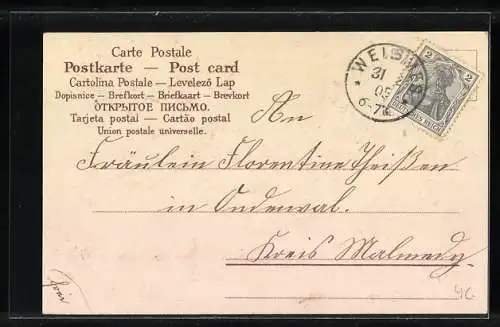 Carte Postale
Postkarte — Post card
Cartolina Postale — Levelező Lap
Dopisnice — Brefkort — Briefkaart — Brevkort
ОТКРЫТОЕ ПИСЬМО.
Tarjeta postal — Cartão postal
Union postale universelle.
WEISMES
31
05
6-7N.
2 2
DEUTSCHES REICH
An
Fräulein Florentine Theißen
in Ondenval.
Kreis Malmedy.